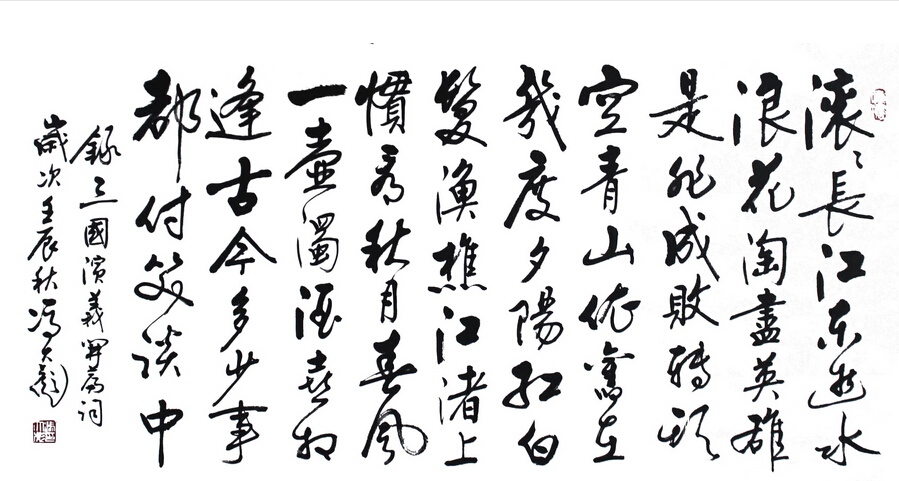 滾〻長江東逝水
浪花淘盡英雄
是非成敗轉頭
空青山依舊在
幾度夕陽紅白
髮漁樵江渚上
慣看秋月春風
一壺濁酒喜相
逢古今多少事
都付笑談中
錄三國演義開篇詞
歲次壬辰秋馮